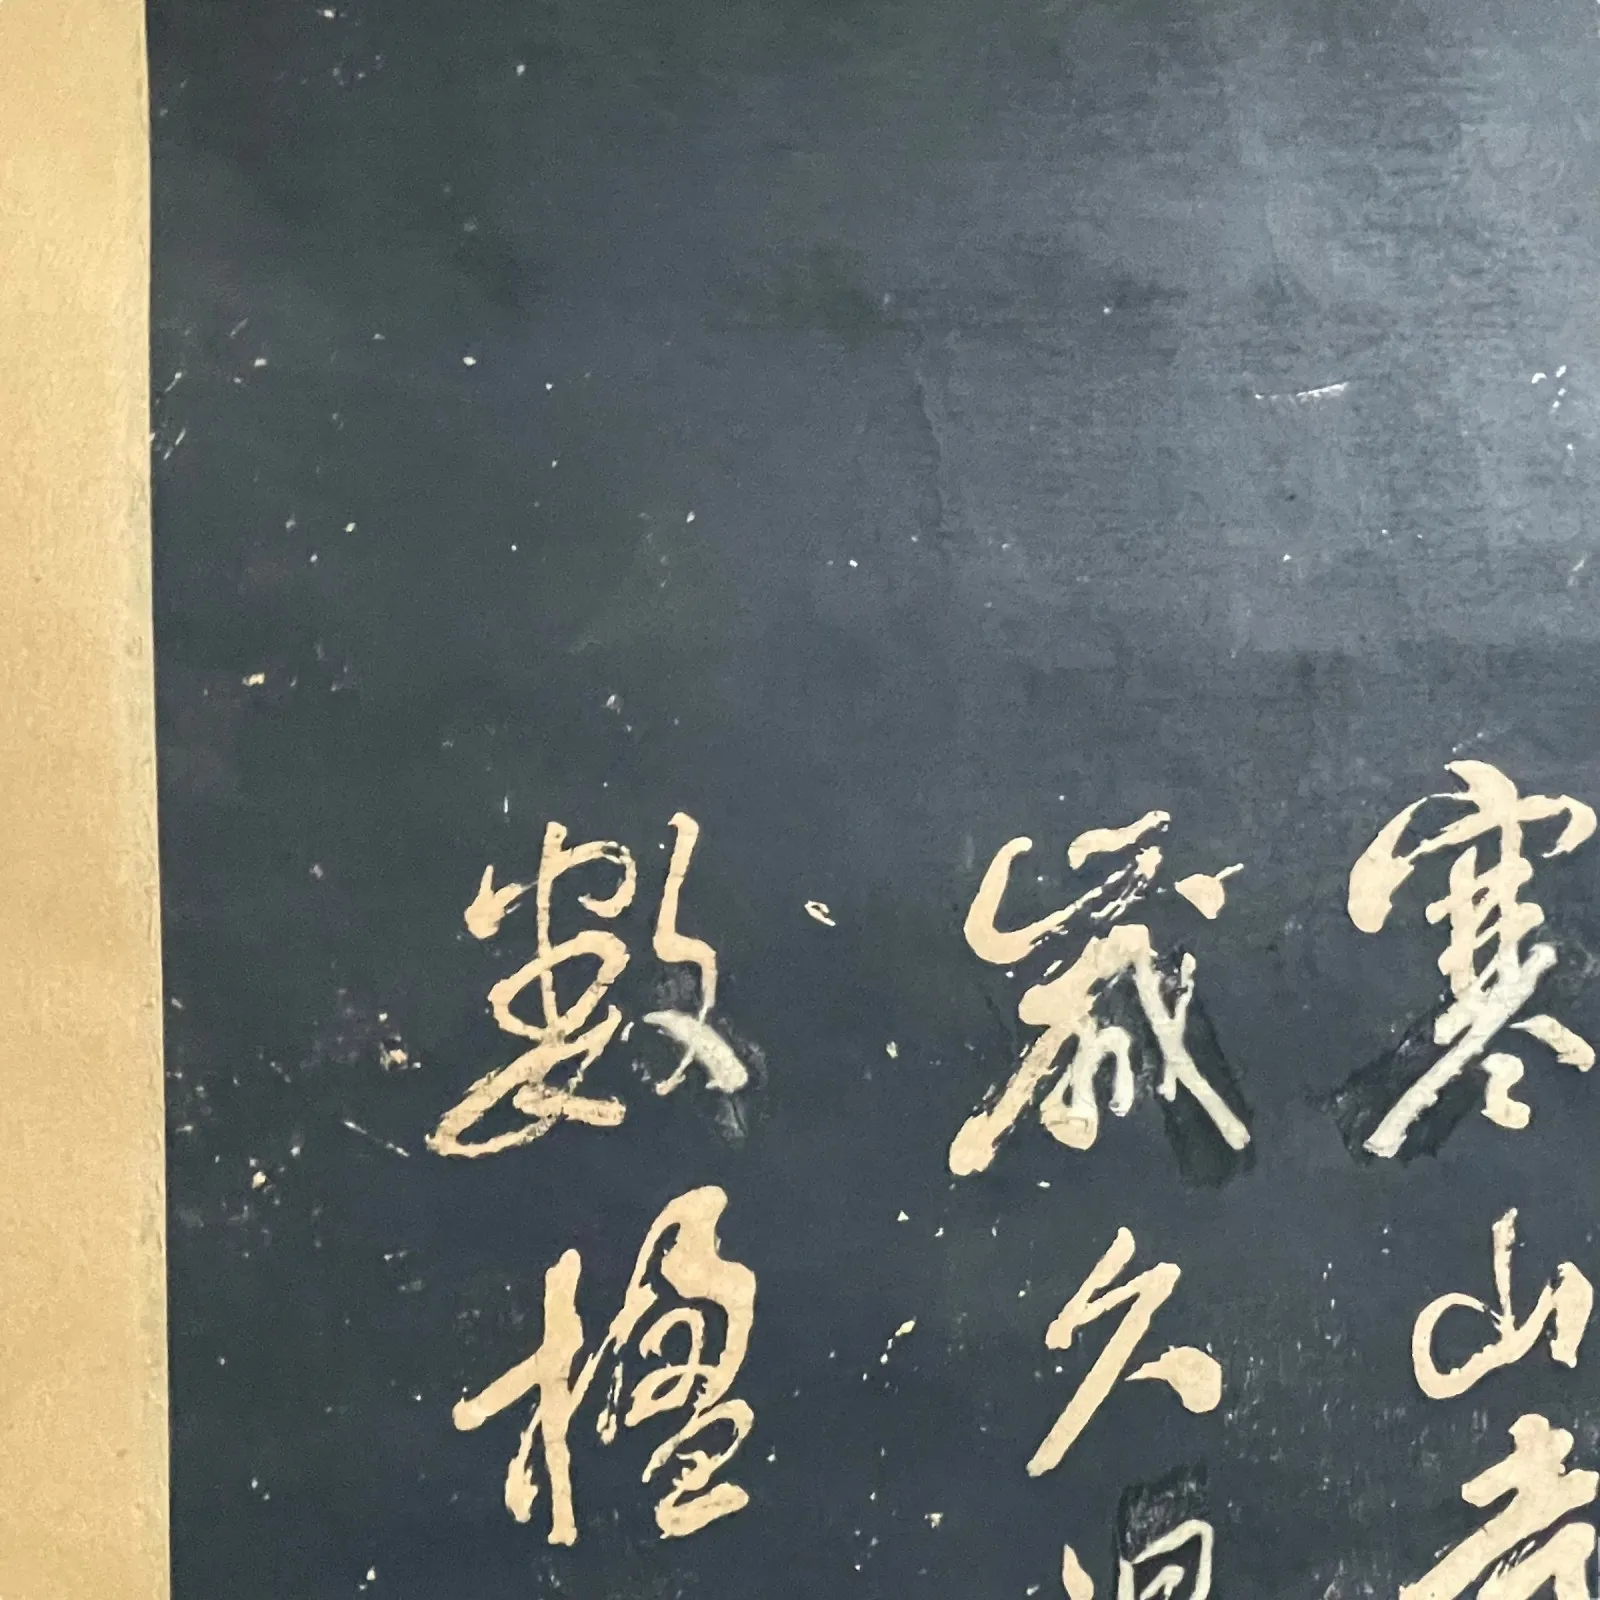 寒山
歲久
數楹